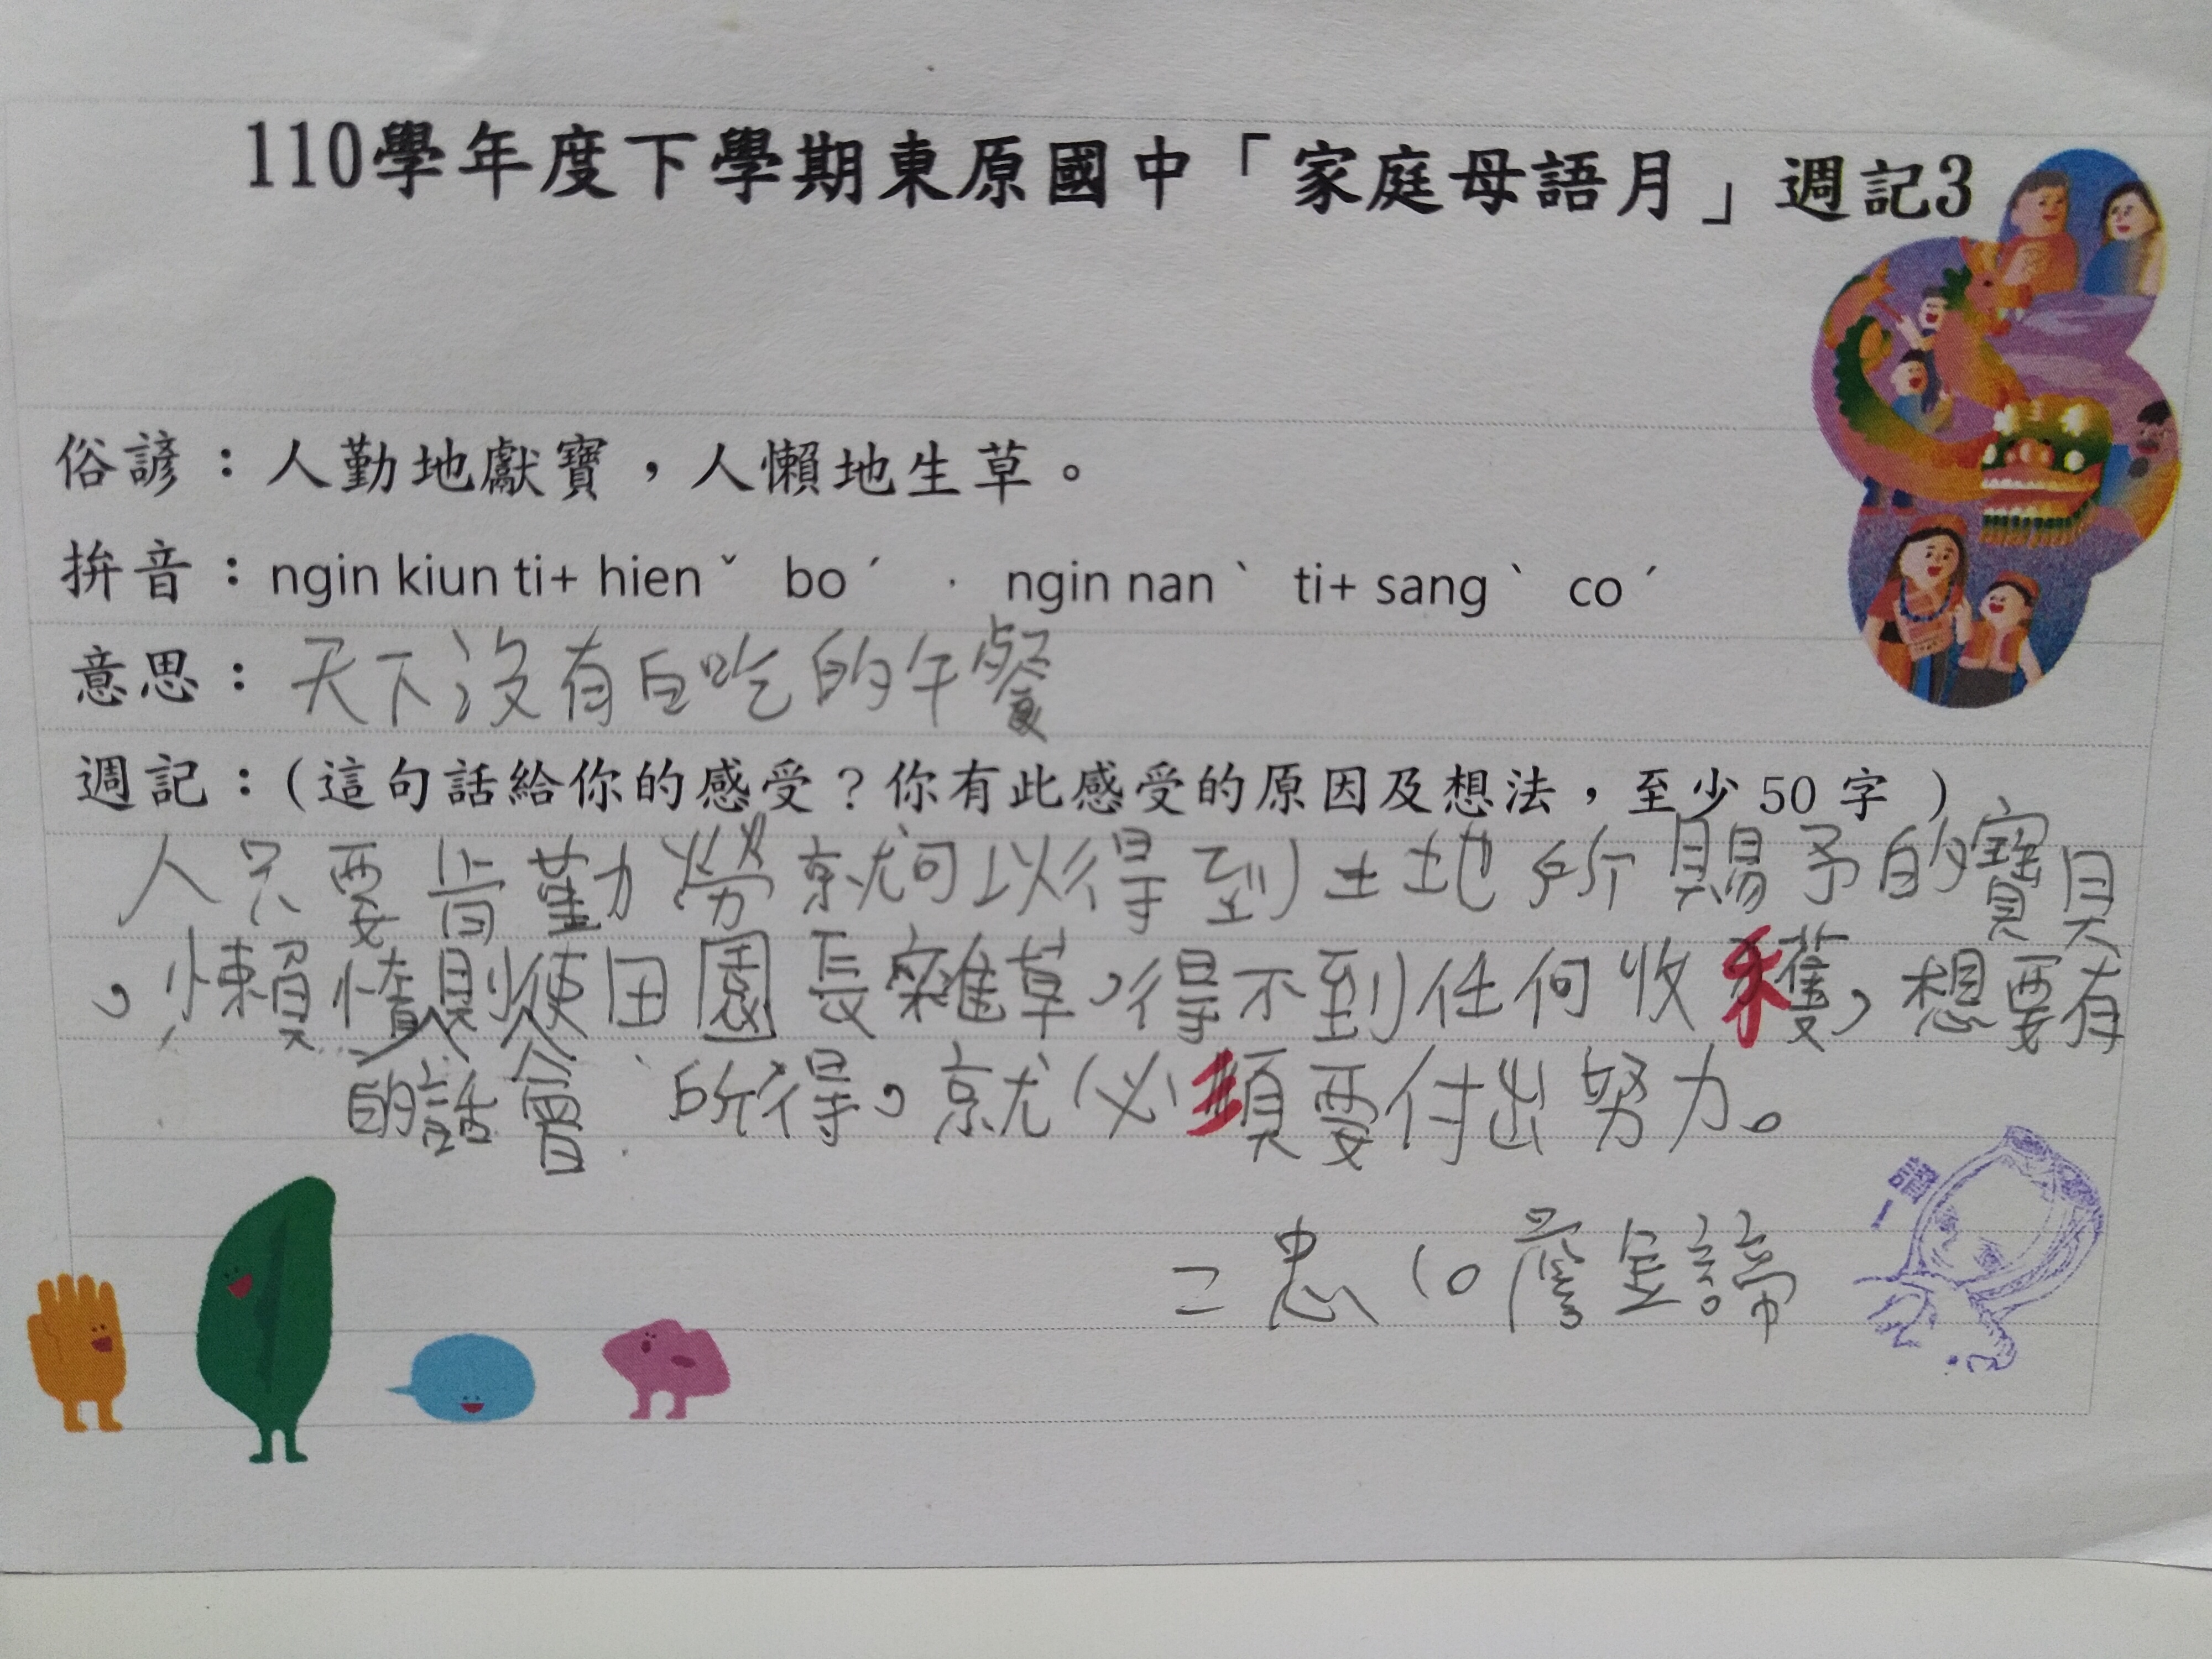 110學年度下學期東原國中「家庭母語月」週記3
俗諺：人勤地獻寶，人懶地生草。
拚音：ngin kiun ti+ hienˇ boˊ ． ngin nanˋ ti+ sangˋ coˊ
意思：天下沒有白吃的午餐
週記：(這句話給你的感受？你有此感受的原因及想法，至少 50 字 )
人只要肯勤勞就可以得到土地所賜予的寶貝
，懶惰則使田園長雜草，得不到任何收穫，想要有
的話 會 所得，就必須要付出努力。
二忠 10 詹
讚!